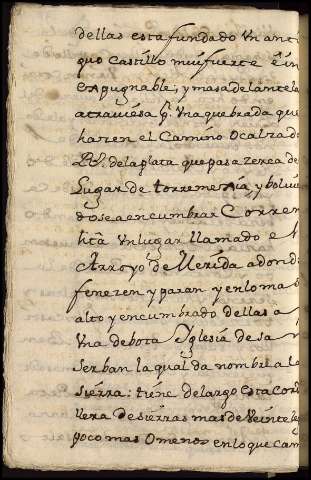 dellas esta fundado Vn anti
quo Castillo mui fuerte é in
expugnable; y mas adelante la
atraviesa q̃. Vna quebrada que
hazen el Camino O calzada
Rl. de la plata que pasa zerca de
Lugar de torremexia, y bolvien
dose a encumbrar Corren
hta Vn lugar llamado e
Arroyo de Merida adond
fenezen y paran y en lo ma
alto y encumbrado dellas a
Vna debota Iglesia de sa
Serban la qual da nombre a la
sierra: tiene de largo esta Cord
llera De sierras mas de Veinte le
poco mas O menos en lo que cam